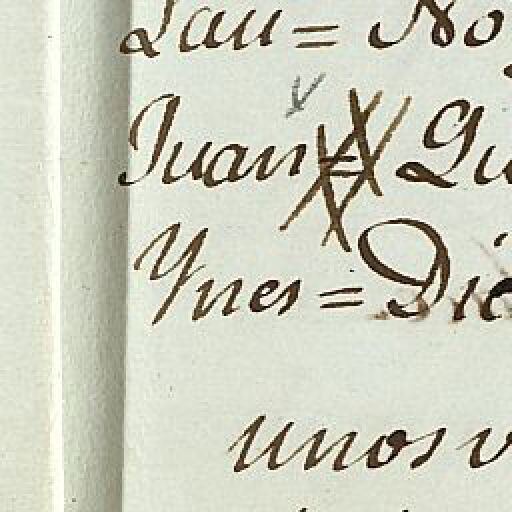 Lau = No
Juan = Qu
Ynes = Die
unos v